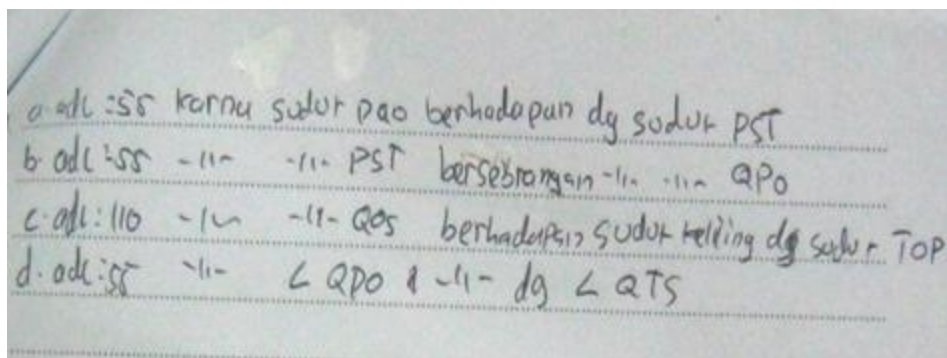 a. adl : 55 karna sudut PQO berhadapan dg sudut PST
b. adl : 55 -11- -11- PST bersebrangan -11- -11- QPO
c. adl : 110 -11- -11- QOS berhadapan sudut keliling dg sudut TOP
d. adl : 55 -11- < QPO -11- dg < QTS